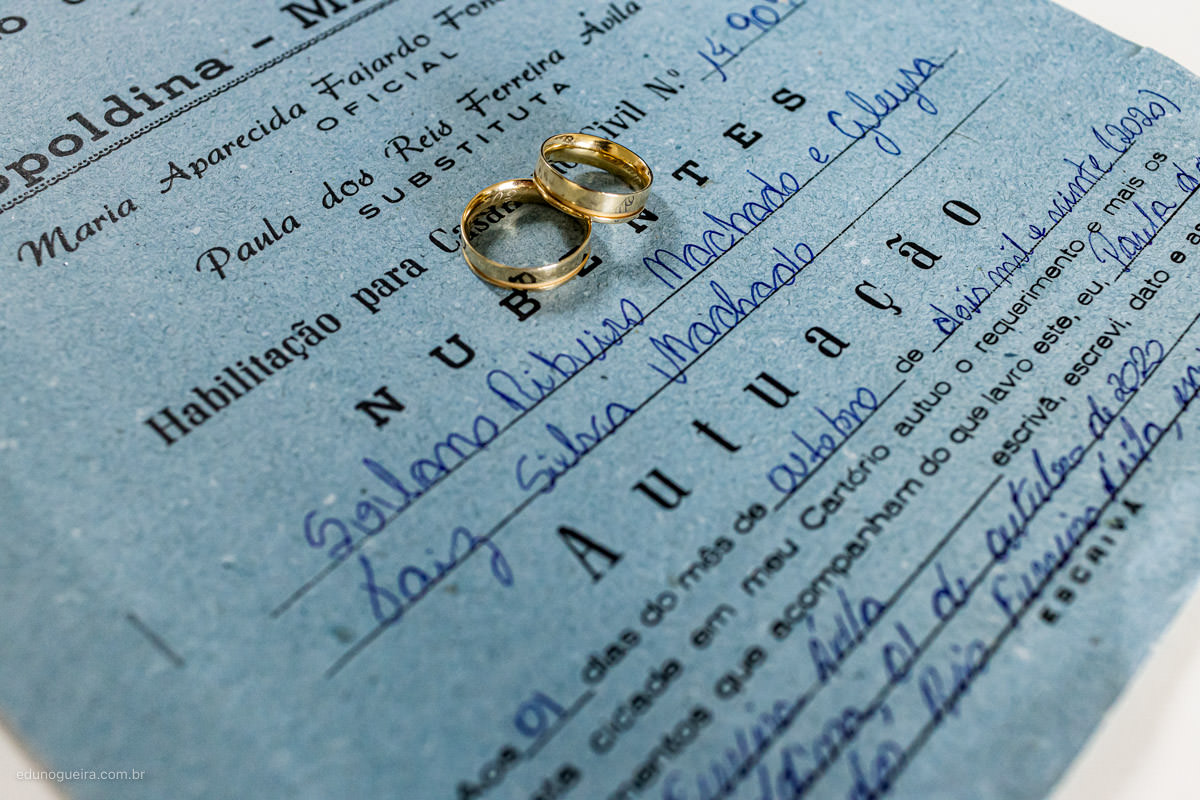 poldina - M
Maria Aparecida Fajardo Fon
OFICIAL
Paula dos Reis Ferreira Ávila
SUBSTITUTA
Habilitação para Casam Civil N.º 14 90
NUBENTES
Ribeiro Machado e Gleyza
Laiz Silva Machado
Autuação
Aos 01 dias do mês de outubro de dois mil e vinte (2020)
cidade em meu Cartório autuo o requerimento e mais os
mentos que acompanham do que lavro este, eu, Paula dos
Ferreira Ávila escrivã, escrevi, dato e as
dina, 01 de outubro de 2020
do Reis Ferreira Ávila,
ESCRIVÃ
edunogueira.com.br